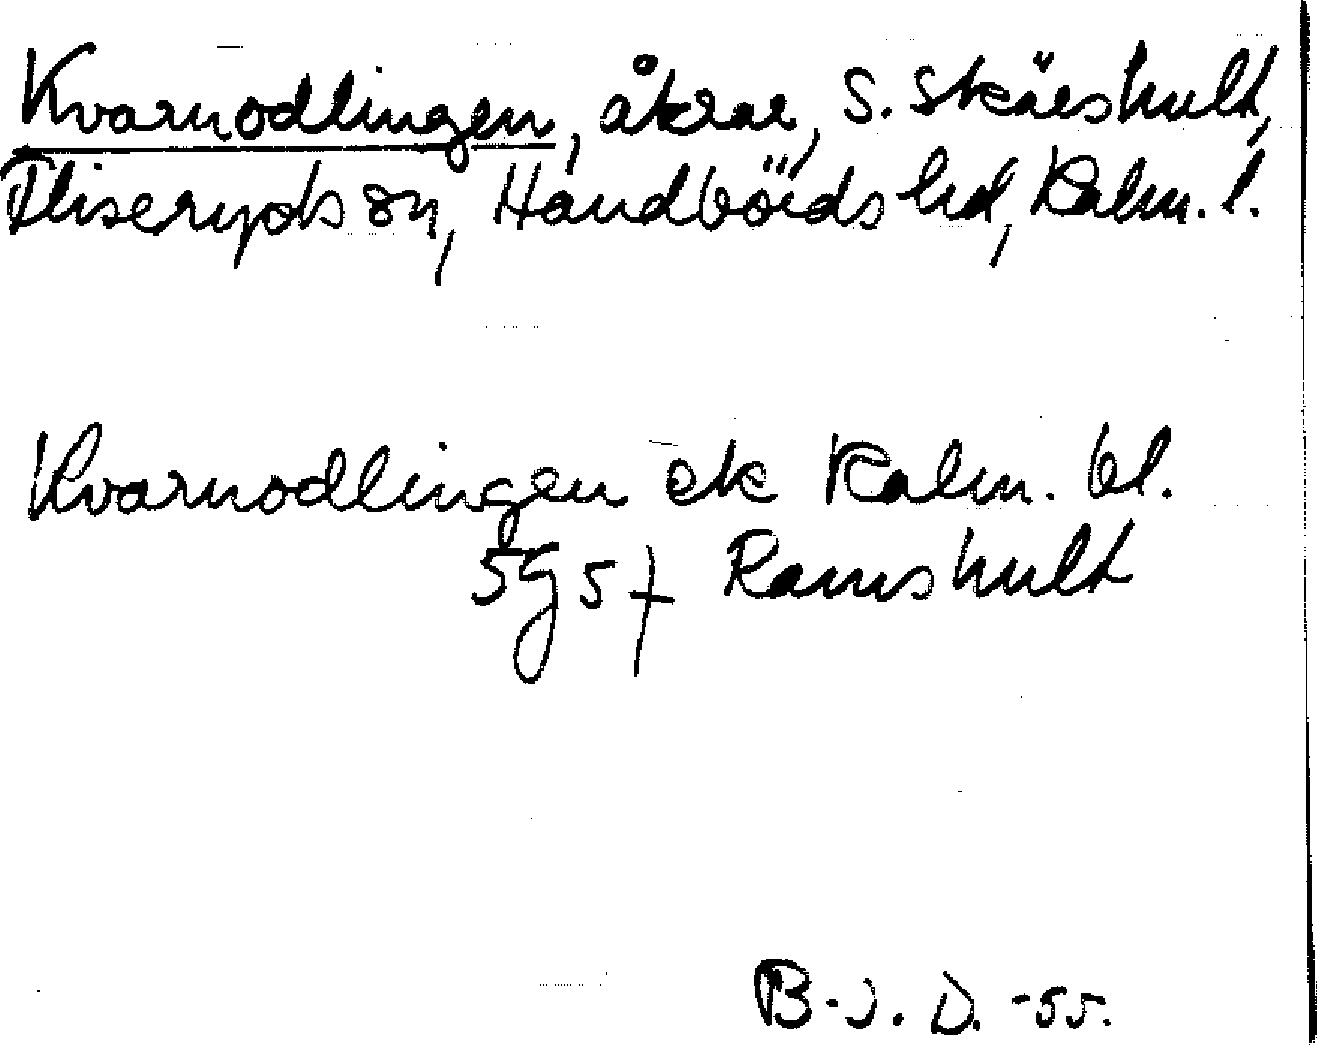 Kvarnodlingen, åkrar, S. Skärshult,
Fliseryds sn, Handbörds hd, Kalm. l.
Kvarnodlingen ek Kalm. bl.
5G5f Ramshult
B-J. D. -55.